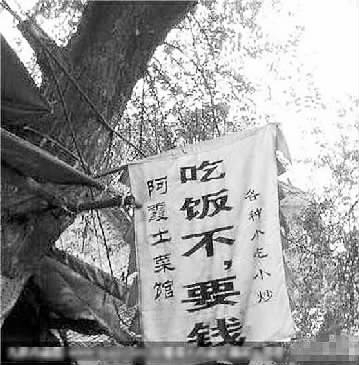 阿霞土菜馆
吃饭不，要钱
各种小吃小炒